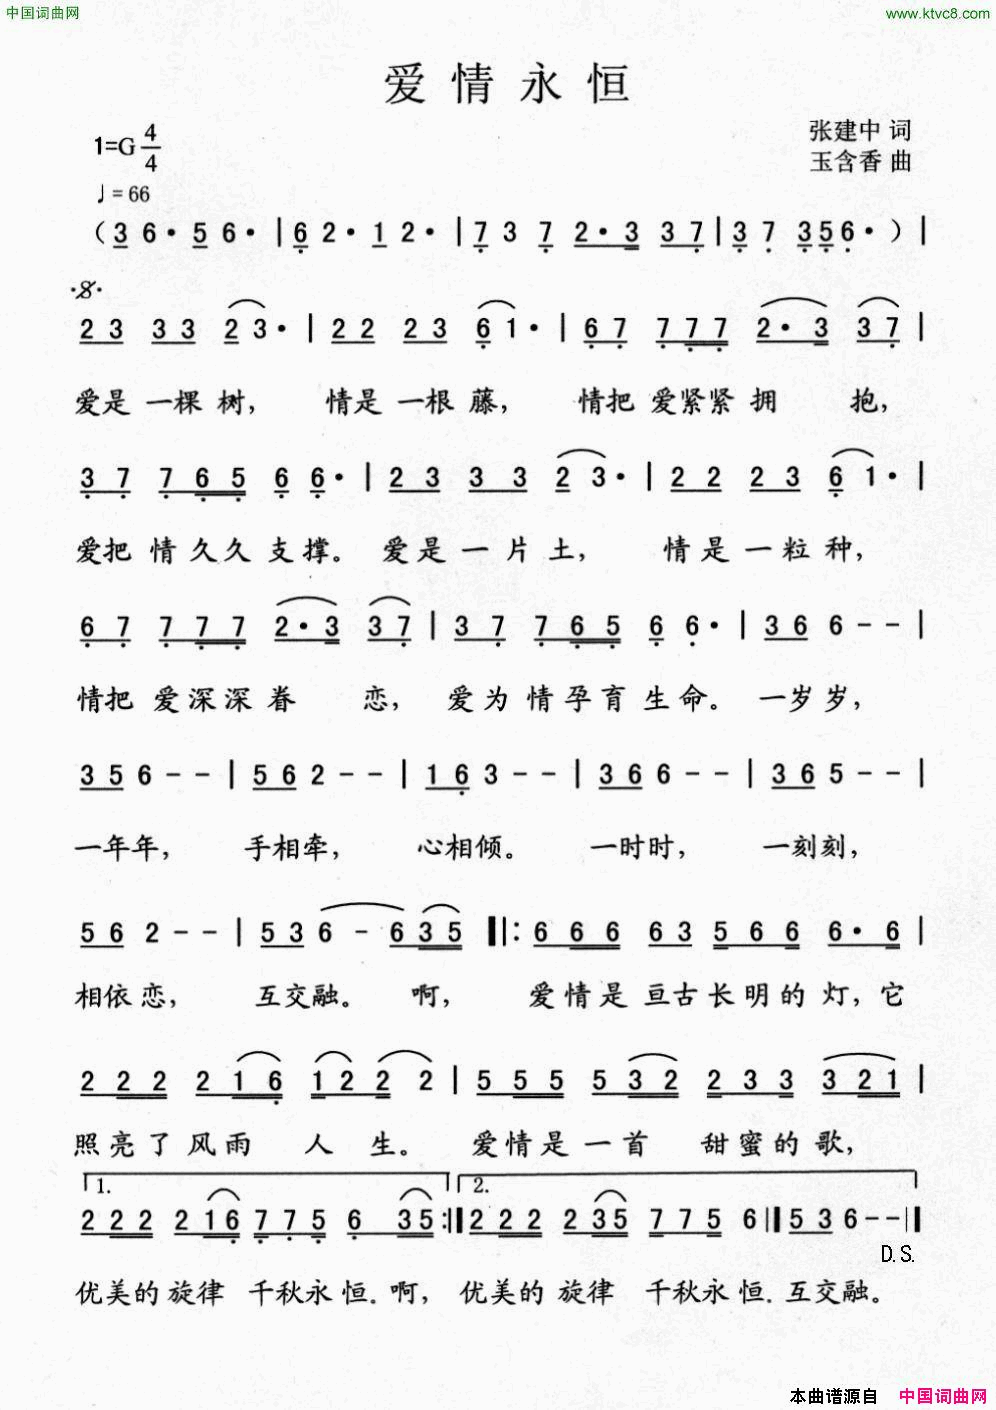 中国词曲网
www.ktvc8.com
爱情永恒
1=G 4/4
张建中 词
玉含香 曲
♩=66
(3 6· 5 6· | 6 2· 1 2· | 7 3 7 2·3 3 7 | 3 7 3 5 6· ) |
2 3 3 3 2 3· | 2 2 2 3 6 1· | 6 7 7 7 7 2·3 3 7 |
爱是一棵树, 情是一根藤, 情把爱紧紧拥抱,
3 7 7 6 5 6 6· | 2 3 3 3 2 3· | 2 2 2 3 6 1· |
爱把情久久支撑。爱是一片土, 情是一粒种,
6 7 7 7 7 2·3 3 7 | 3 7 7 6 5 6 6· | 3 6 6 - - |
情把爱深深眷恋, 爱为情孕育生命。一岁岁,
3 5 6 - - | 5 6 2 - - | 1 6 3 - - | 3 6 6 - - | 3 6 5 - - |
一年年, 手相牵, 心相倾。一时时, 一刻刻,
5 6 2 - - | 5 3 6 - 6 3 5 ‖: 6 6 6 6 3 5 6 6 6·6 |
相依恋, 互交融。啊, 爱情是亘古长明的灯,它
2 2 2 2 1 6 1 2 2 2 | 5 5 5 5 3 2 2 3 3 3 2 1 |
照亮了风雨人生。爱情是一首甜蜜的歌,
1. 2.
2 2 2 2 1 6 7 7 5 6 3 5 :‖ 2 2 2 2 3 5 7 7 5 6 ‖ 5 3 6 - - ‖
D.S.
优美的旋律 千秋永恒.啊, 优美的旋律 千秋永恒.互交融。
本曲谱源自 中国词曲网